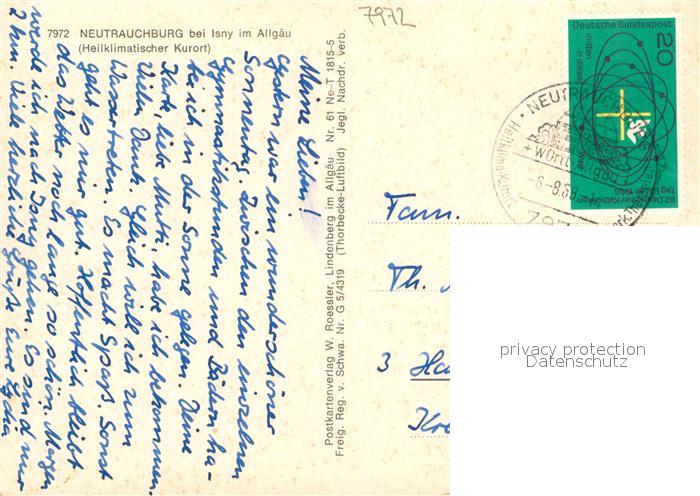 7972
7972 NEUTRAUCHBURG bei Isny im Allgäu
(Heilklimatischer Kurort)
Meine Lieben!
Gestern war ein wunderschöner
Sonnentag. Zwischen den einzelnen
Gymnastikstunden und Bädern ha-
be ich in der Sonne gelegen. Deine
Karte, liebe Mutti, habe ich bekommen.
Vielen Dank. Gleich will ich zum
Wassertreten. Es macht Spaß. Sonst
geht es mir gut. Hoffentlich bleibt
das Wetter noch lange so schön. Morgen
werde ich nach Isny gehen. Es sind nur
2 km. Viele herzliche Grüße Eure Lydia
Postkartenverlag W. Roessler, Lindenberg im Allgäu Nr. 61 Ne-T 1815-5
Freig. Reg. v. Schwa. Nr. G 5/4319 (Thorbecke-Luftbild) Jegl. Nachdr. verb.
Deutsche Bundespost
20
mitten
in dieser
82. Deutscher Katholiken
tag Essen 1968
NEUTRAUCHBURG
Heilklima-Kurort
+ Württ Allgäu +
-6.-9.68
797
Fam.
Th.
3 Ha
Kre
privacy protection
Datenschutz